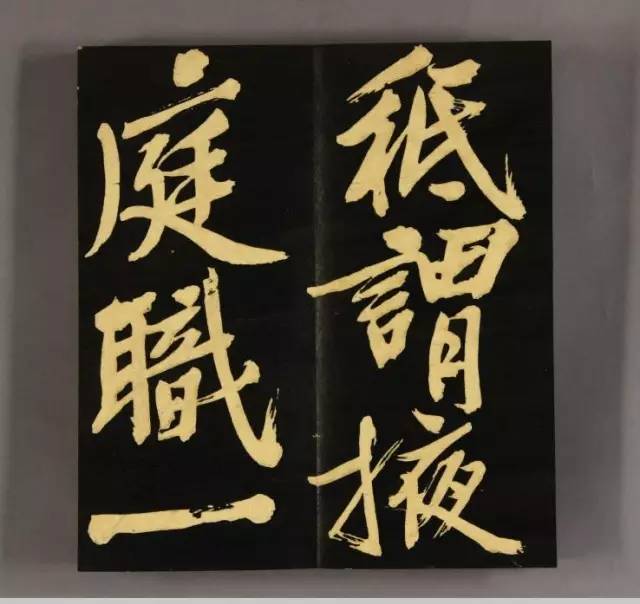 秪謂掖
庭職一